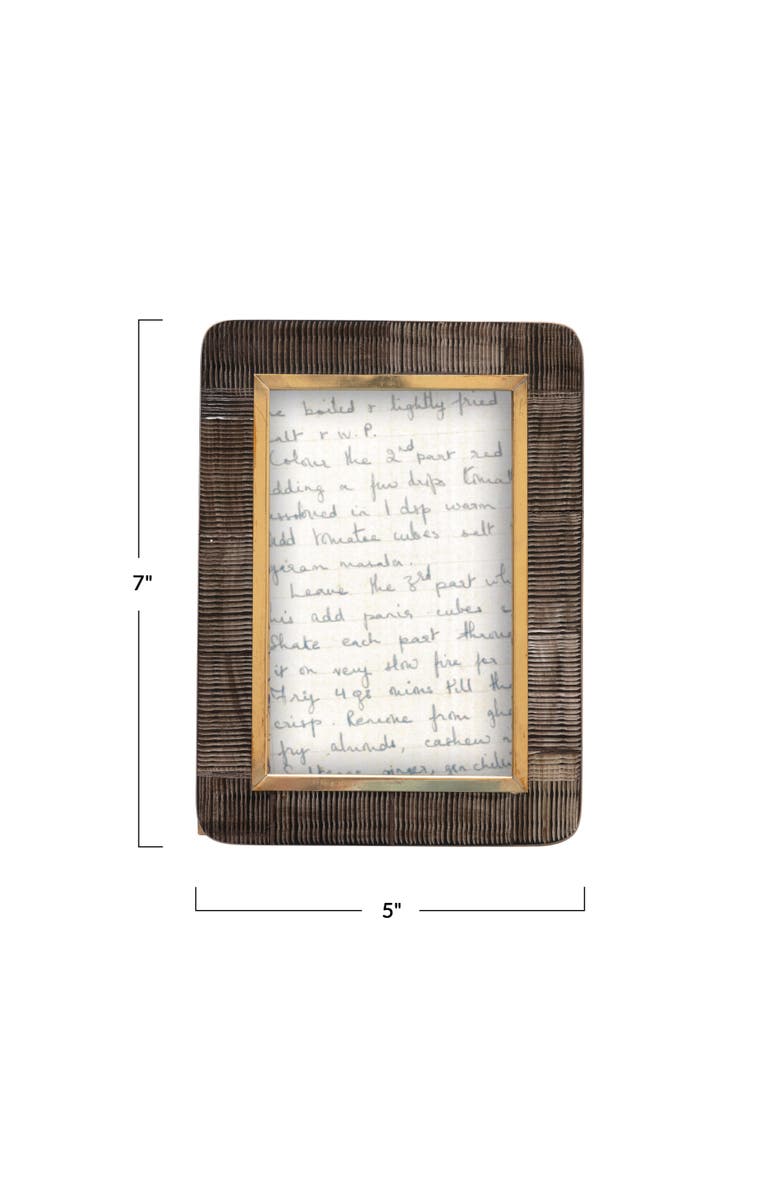 boiled & lightly fried
alt & W.P.
Colour the 2nd part red
dding a few drps tomat
in 1 dsp warm
Add tomatoe cubes salt
garam masala.
Leave the 3rd part wh
his add panir cubes
Shake each part throu
it on very slow fire for
Fry 4 gs onions till th
crisp. Remove from ghe
fry almonds, cashew n
ginger, grn chilli
7"
5"